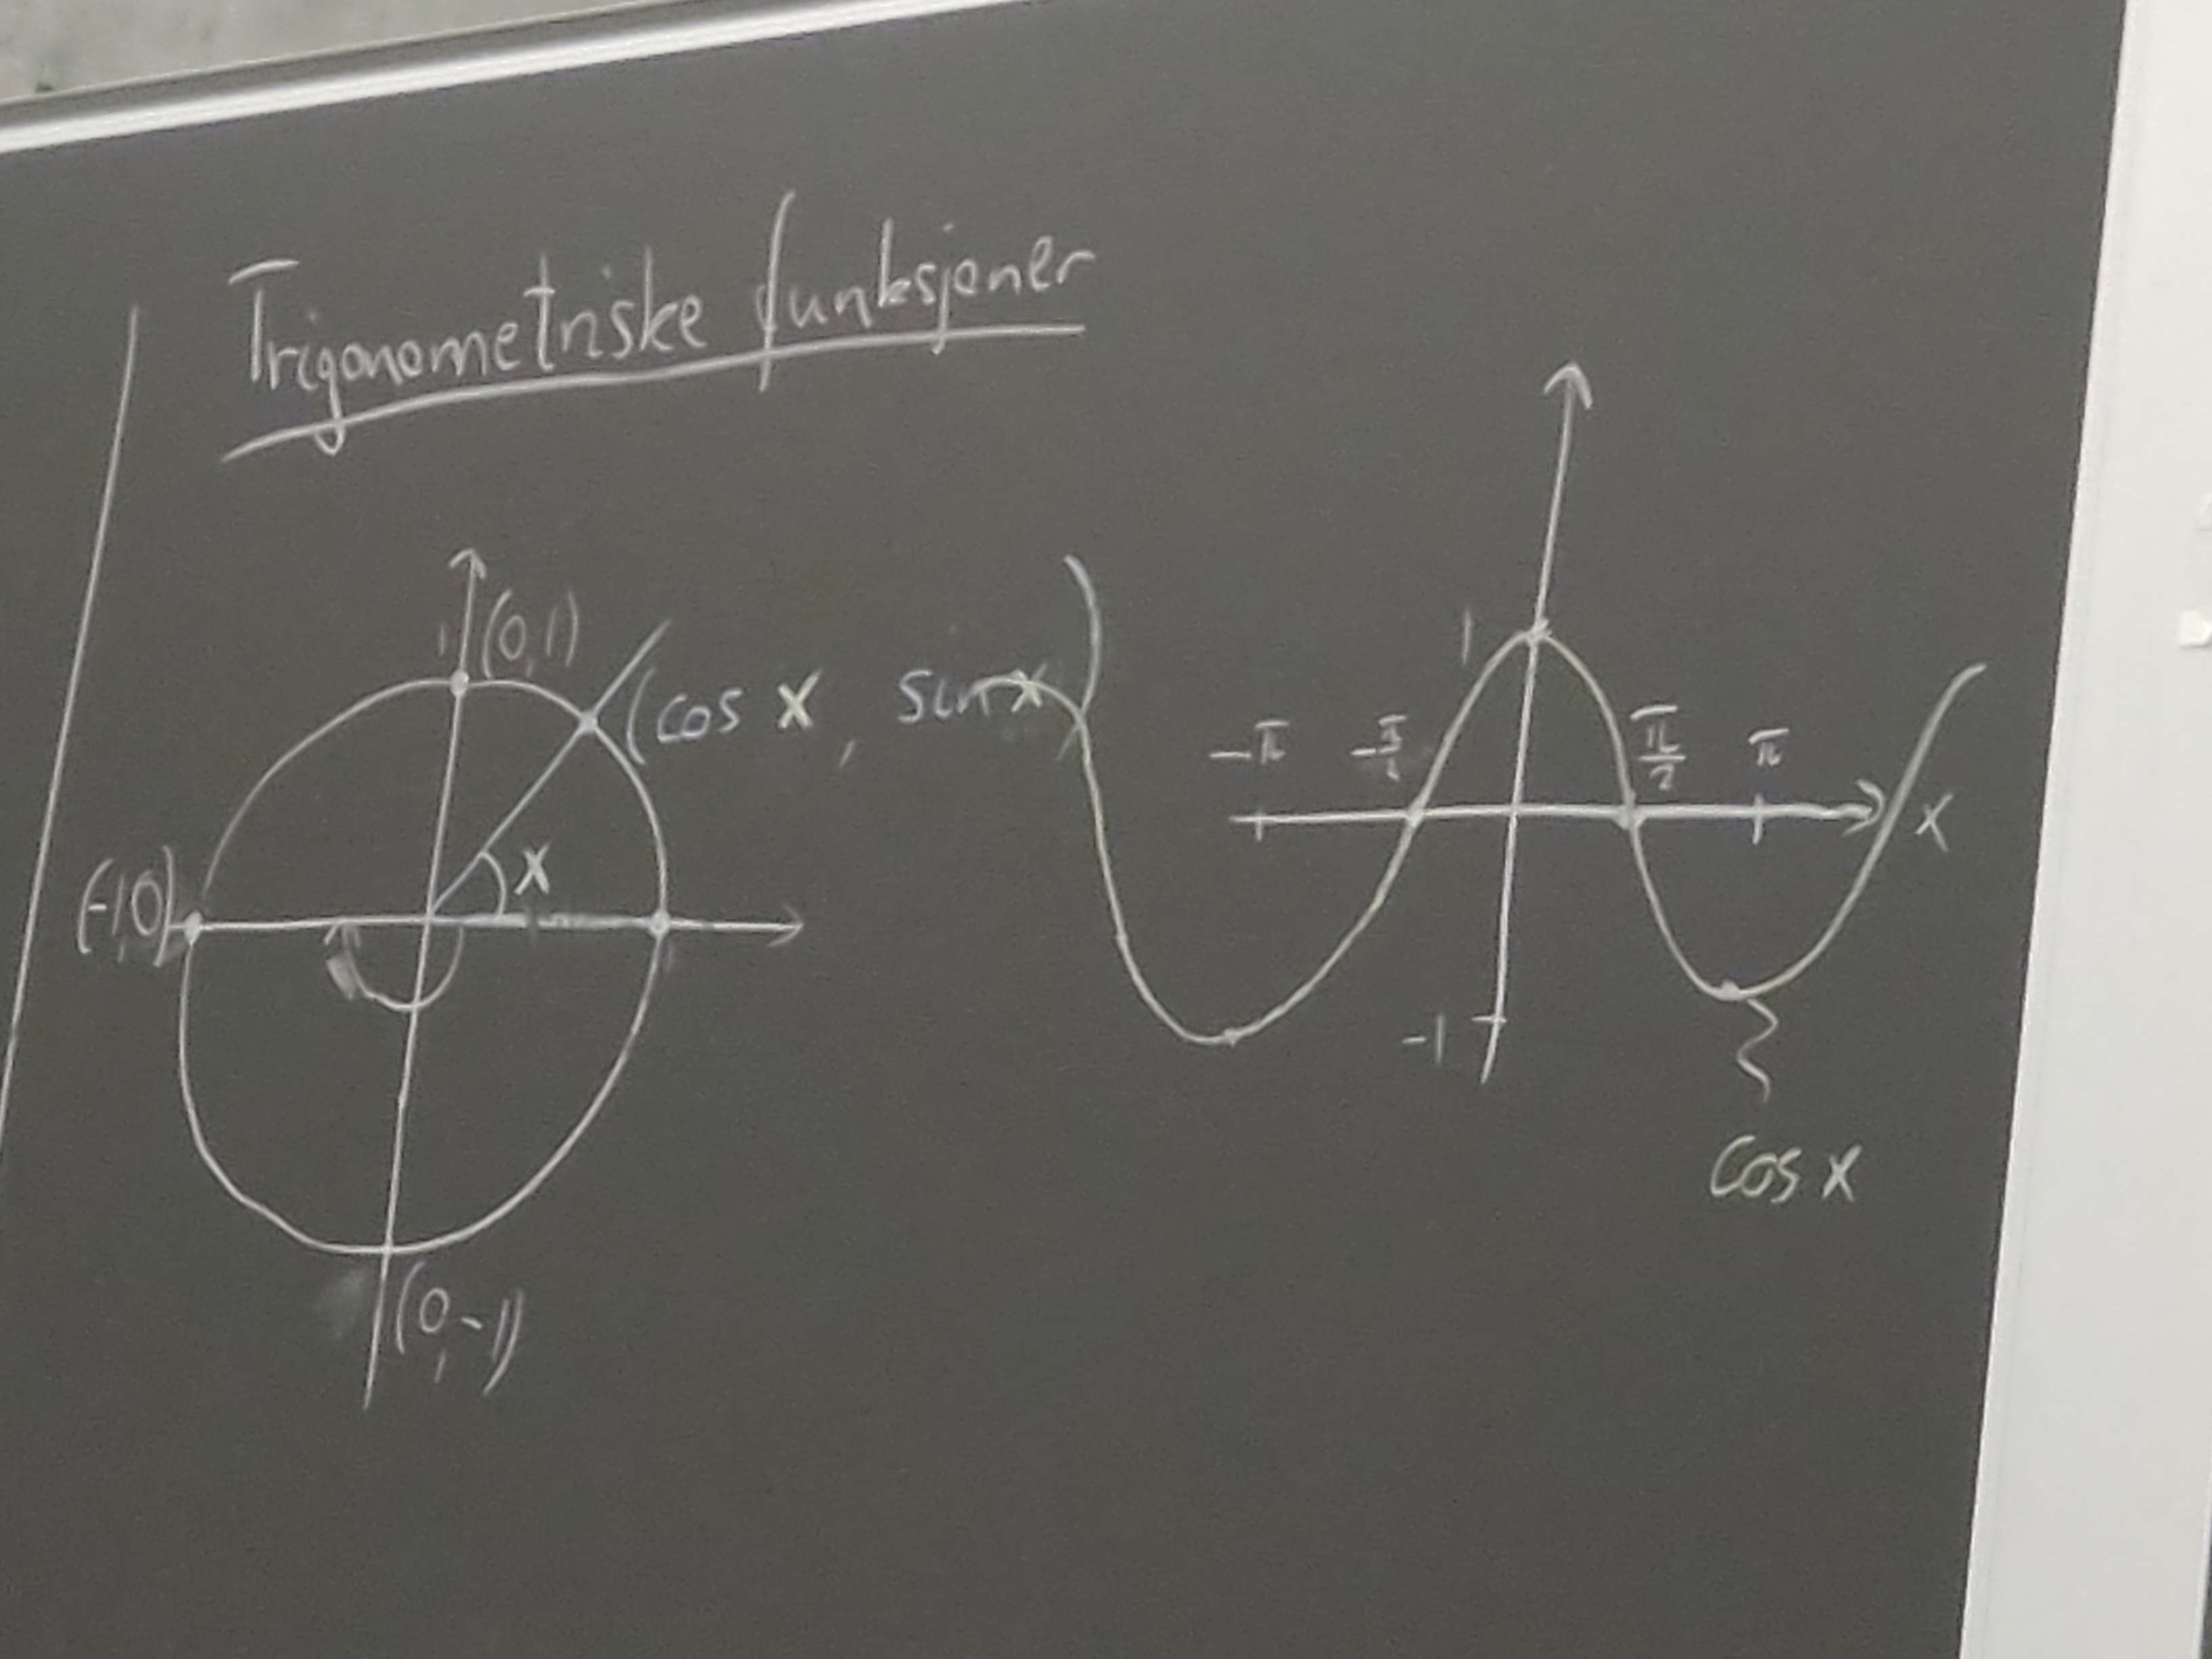 Trigonometriske funksjoner
1 (0,1)
(cos x, sin x)
x
(-1,0)
1
(0,-1)
1
-π
π/2
π
x
-1
cos x